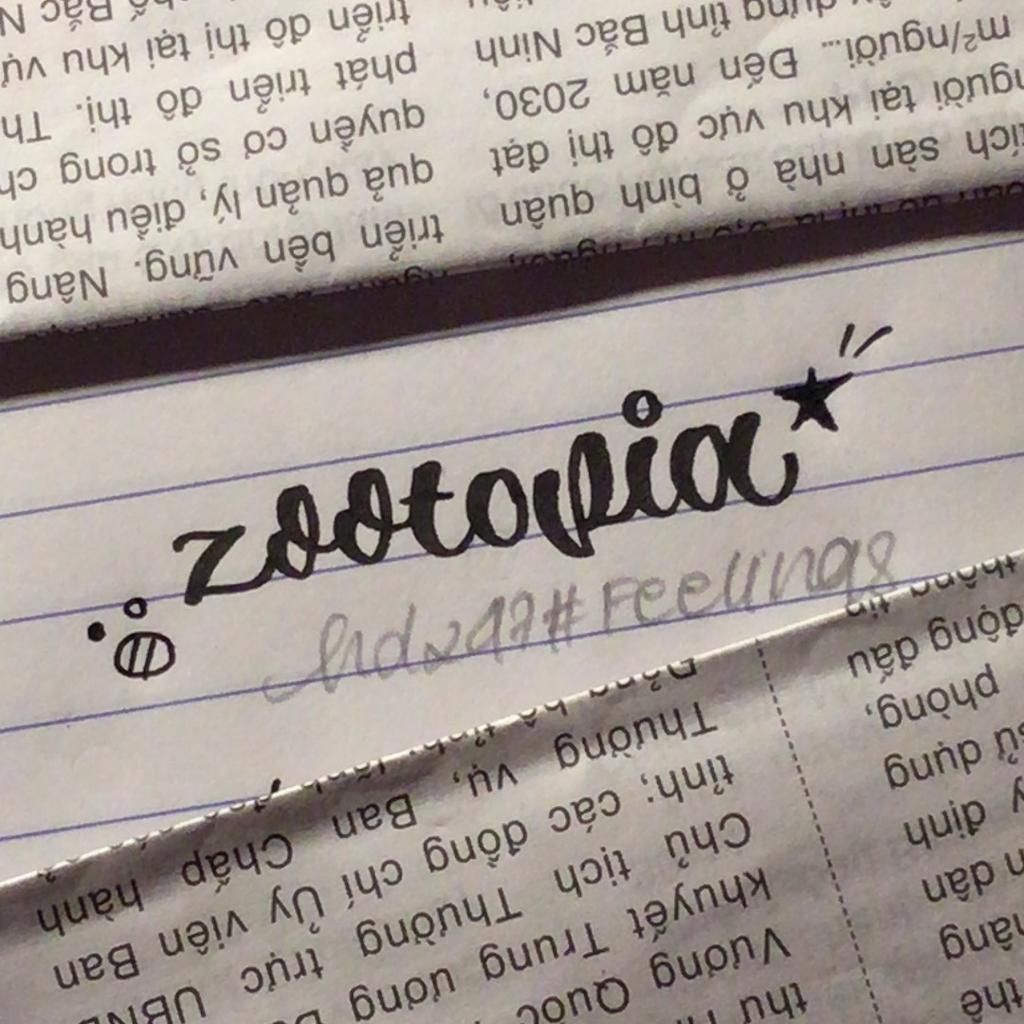 triển đô thị tại khu vự
phát triển đô thị. Th
quyền cơ sở trong ch
quả quản lý, điều hành
triển bền vững. Nâng
tỉnh Bắc Ninh
m²/người... Đến năm 2030,
người tại khu vực đô thị đạt
tích sàn nhà ở bình quân
zootopia
hd247#Feelings
Thường vụ, Ban Chấp hành
tỉnh; các đồng chí Ủy viên Ban
Chủ tịch Thường trực UBND
khuyết Trung ương Đ
Vương Quốc
thư
thông tin
động đấu
phòng,
sử dụng
định
dân
thể